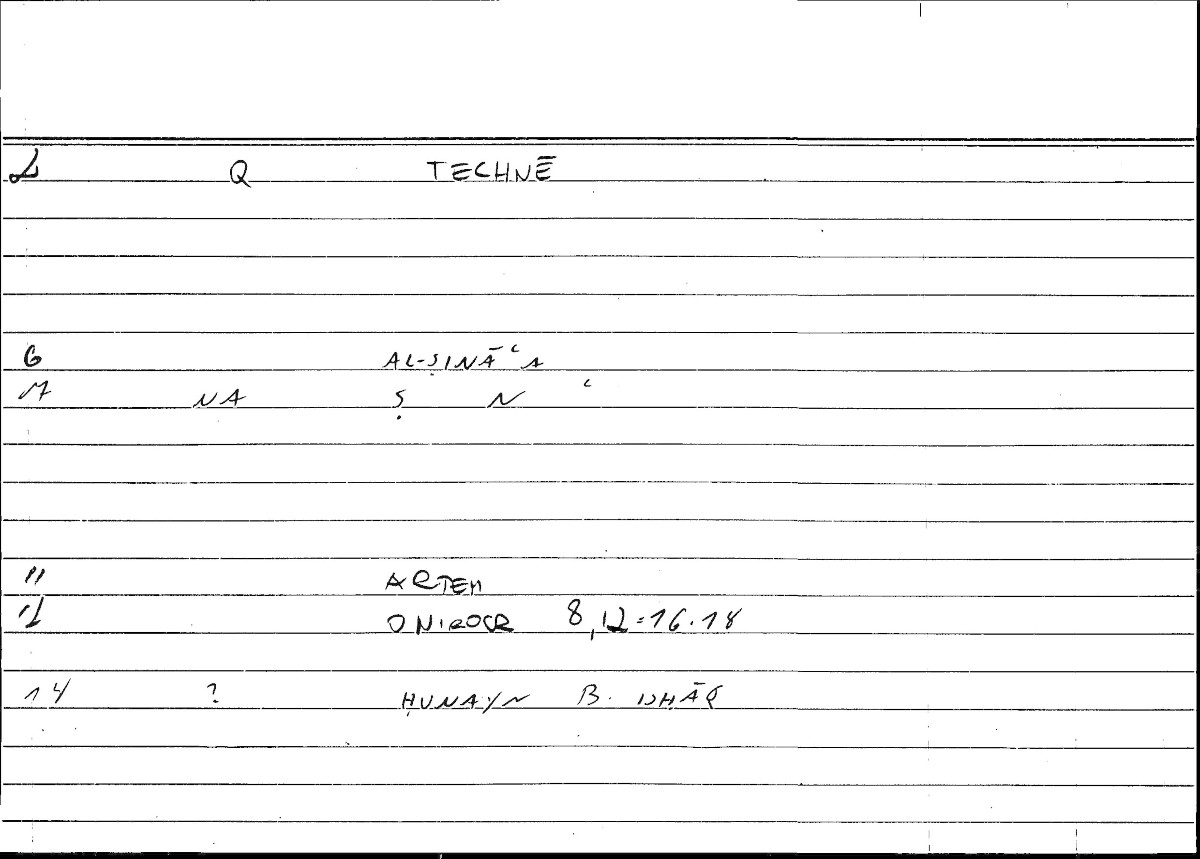 2 Q TECHNĒ
6 AL-ṢINĀʿA
7 NA Ṣ N ʿ
11 ARTEM
12 ONIROCR 8,12=16.18
14 ? ḤUNAYN B. ISḤĀQ